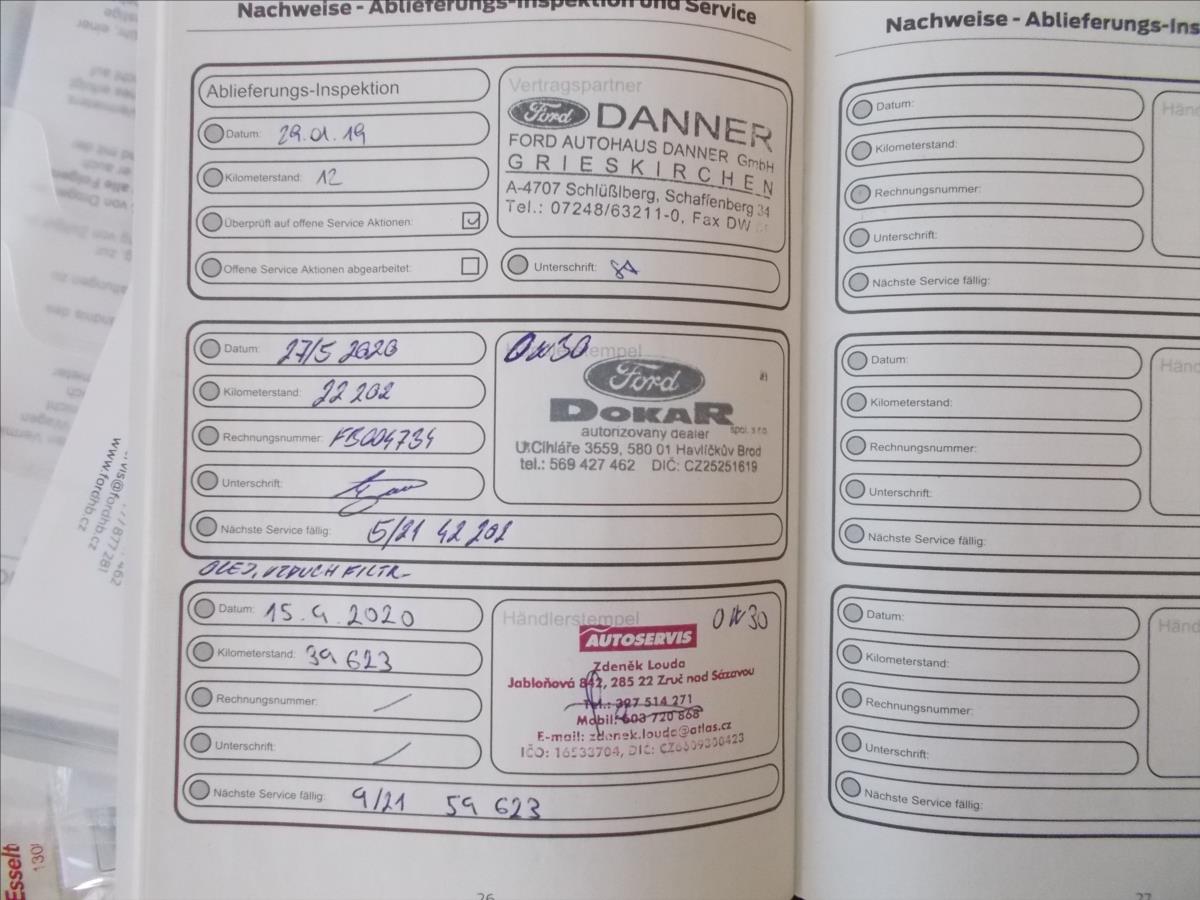 Nachweise - Ablieferungs-Inspektion und Service
Ablieferungs-Inspektion
Datum: 29.01.19
Kilometerstand: 12
Überprüft auf offene Service Aktionen:
Offene Service Aktionen abgearbeitet:
Vertragspartner
Ford DANNER
FORD AUTOHAUS DANNER GmbH
GRIESKIRCHEN
A-4707 Schlüßlberg, Schaffenberg 34
Tel.: 07248/63211-0, Fax DW
Unterschrift:
Datum: 27/5 2020
Kilometerstand: 22 202
Rechnungsnummer: FB004734
Unterschrift:
Nächste Service fällig: 5/21 42 202
0W30
Händlerstempel
Ford
DOKAR
autorizovany dealer spol. s r.o.
U Cihláře 3559, 580 01 Havlíčkův Brod
tel.: 569 427 462 DIČ: CZ25251619
OLEJ, VZDUCH FILTR
Datum: 15.9.2020
Kilometerstand: 39 623
Rechnungsnummer: /
Unterschrift: /
Nächste Service fällig: 9/21 59 623
Händlerstempel 0W30
AUTOSERVIS
Zdeněk Louda
Jabloňová 842, 285 22 Zruč nad Sázavou
Tel.: 327 514 271
Mobil: 603 720 868
E-mail: zdenek.louda@atlas.cz
IČO: 16533704, DIČ:
26
Nachweise - Ablieferungs-Ins
Datum:
Kilometerstand:
Rechnungsnummer:
Unterschrift:
Nächste Service fällig:
Händ
Datum:
Kilometerstand:
Rechnungsnummer:
Unterschrift:
Nächste Service fällig:
Händ
Datum:
Kilometerstand:
Rechnungsnummer:
Unterschrift:
Nächste Service fällig:
Händ
27
vis@fordhb.cz
www.fordhb.cz
877 281
462
Esselt
130